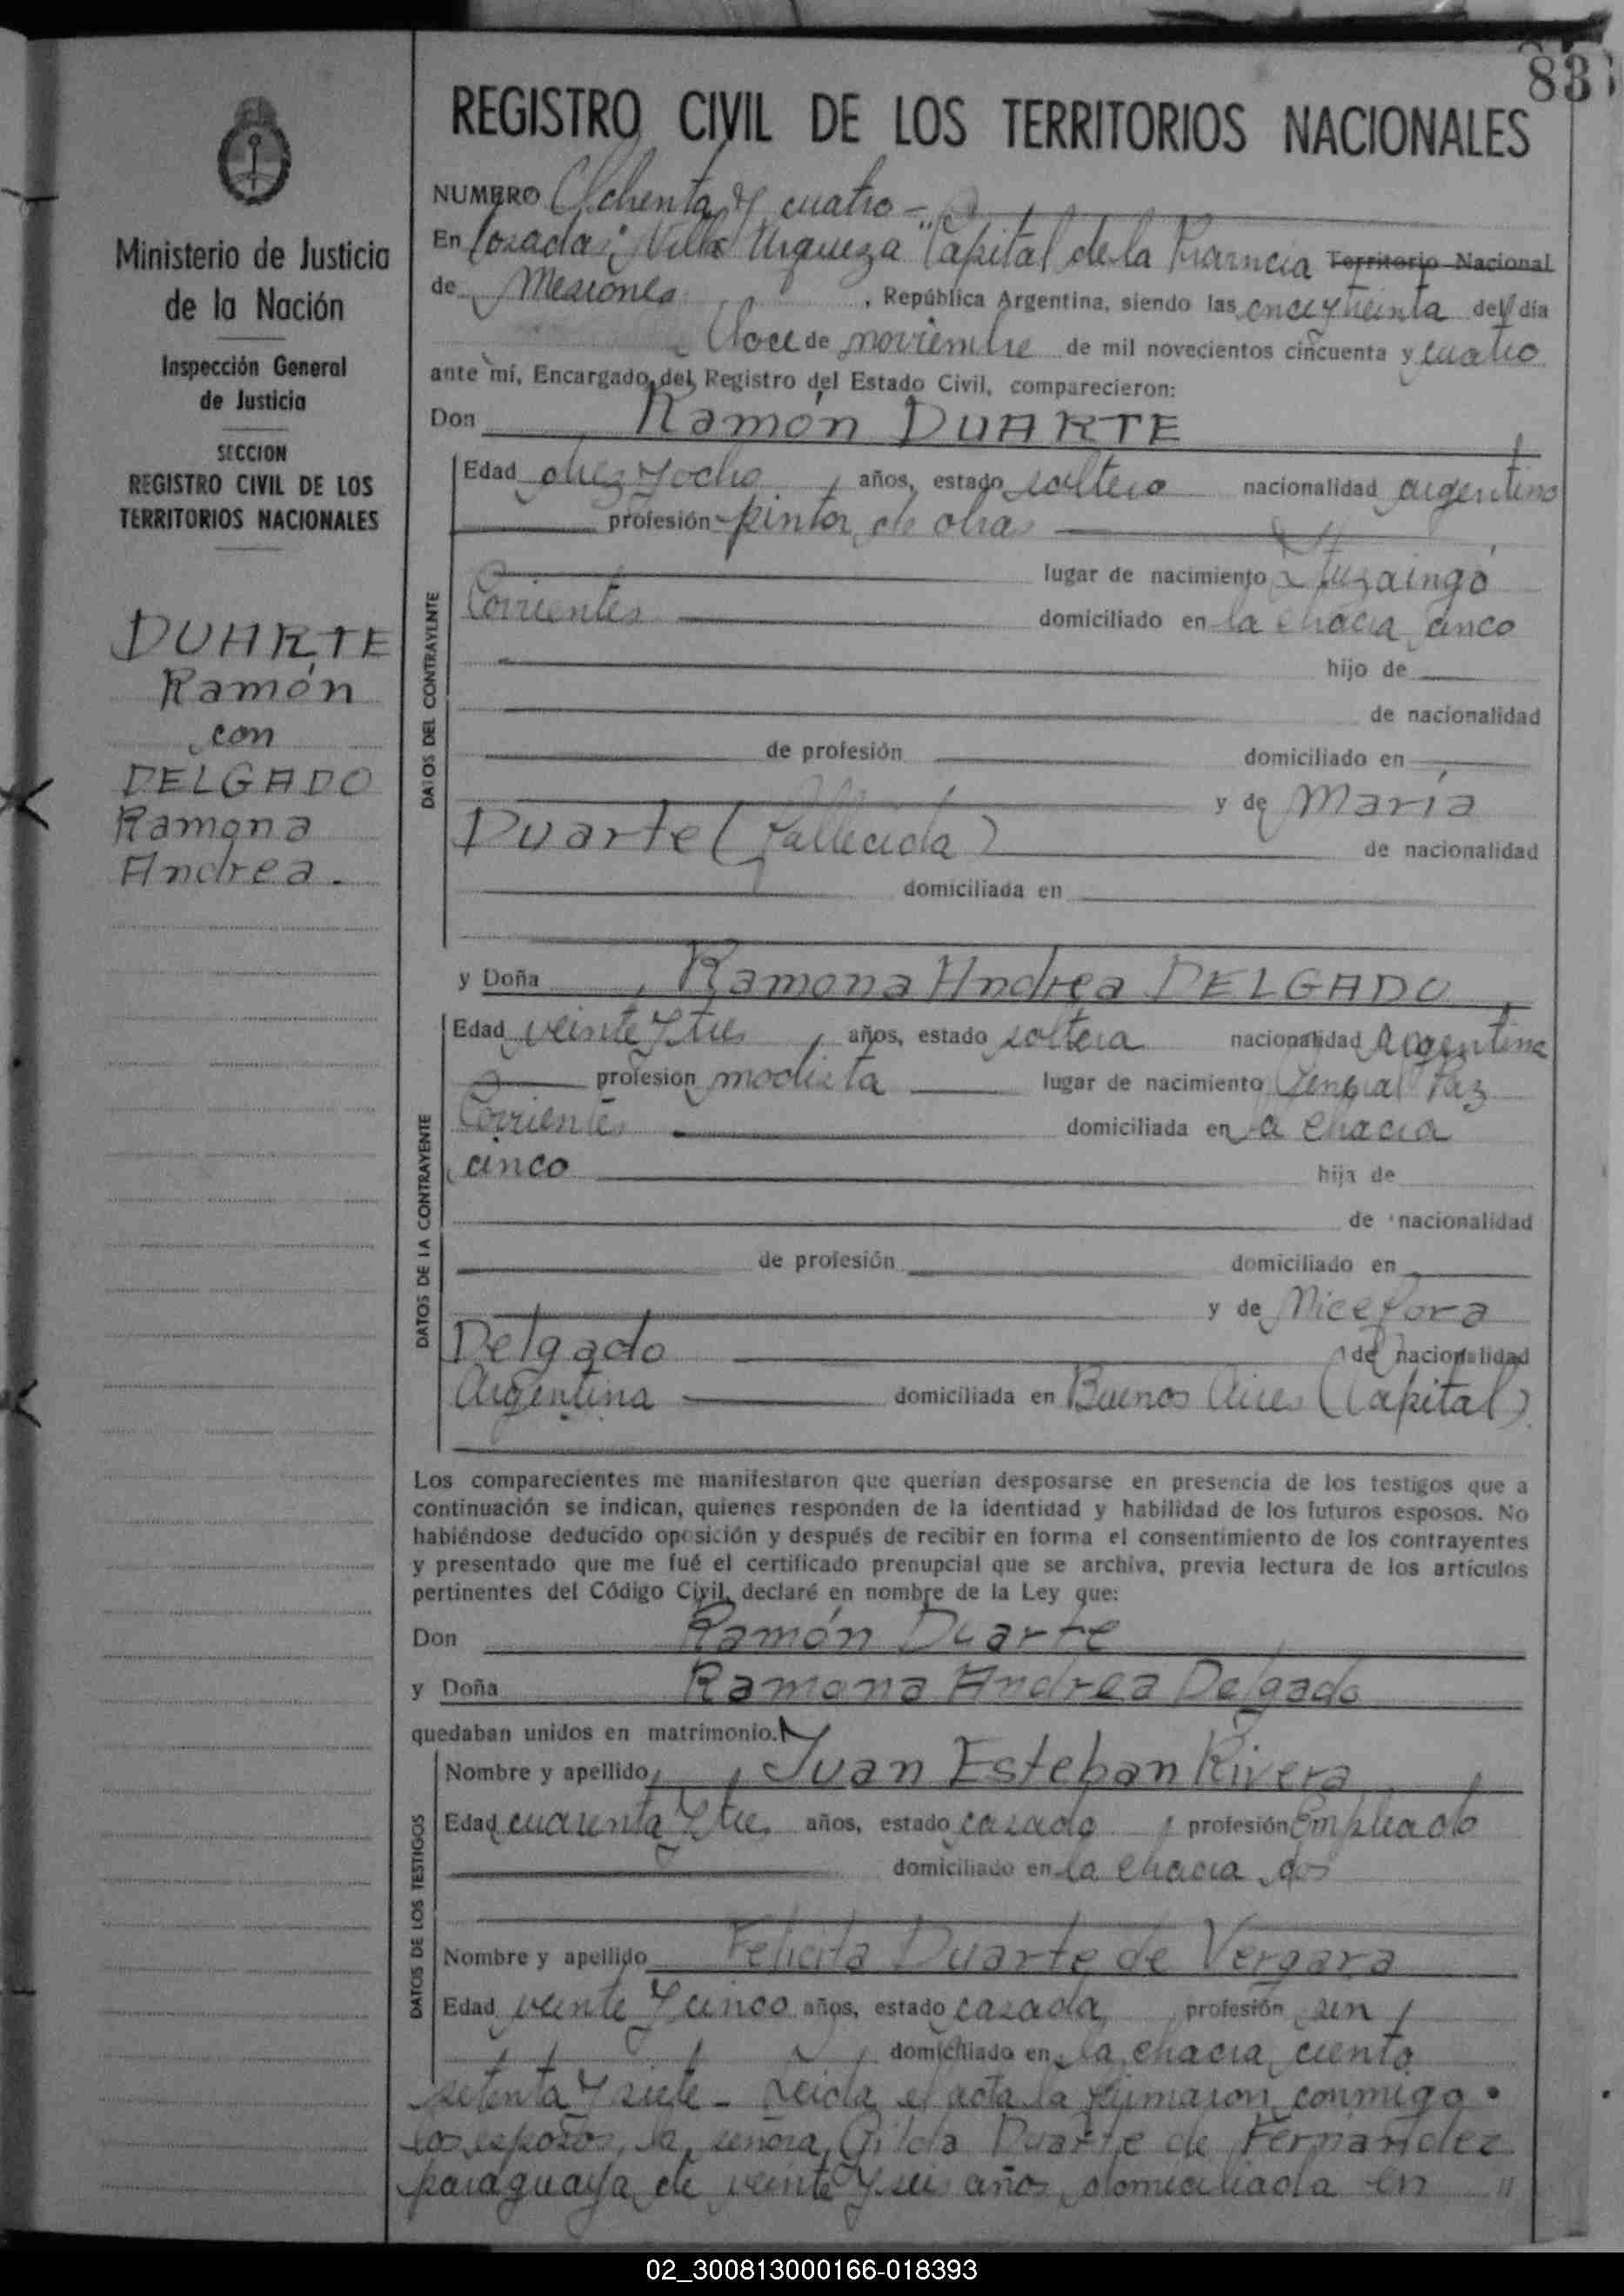 83
REGISTRO CIVIL DE LOS TERRITORIOS NACIONALES
Ministerio de Justicia
de la Nación
Inspección General
de Justicia
SECCION
REGISTRO CIVIL DE LOS
TERRITORIOS NACIONALES
DUARTE
Ramón
con
DELGADO
Ramona
Andrea.
NUMERO Ochenta y cuatro -
En Posadas, "Villa Urquiza" Capital de la Provincia Territorio Nacional
de Misiones , República Argentina, siendo las once y treinta del día
doce de noviembre de mil novecientos cincuenta y cuatro
ante mí, Encargado del Registro del Estado Civil, comparecieron:
Don Ramón DUARTE
DATOS DEL CONTRAYENTE
Edad diez y ocho años, estado soltero nacionalidad argentino
profesión pintor de obras
lugar de nacimiento Ituzaingó
Corrientes domiciliado en la chacra cinco
hijo de
de nacionalidad
de profesión domiciliado en
y de María
Duarte (fallecida) de nacionalidad
domiciliada en
y Doña Ramona Andrea DELGADO
DATOS DE LA CONTRAYENTE
Edad veinte y tres años, estado soltera nacionalidad Argentina
profesion modista lugar de nacimiento General Paz
Corrientes domiciliada en la chacra
cinco hija de
de nacionalidad
de profesión domiciliado en
y de Nicefora
Delgado de nacionalidad
Argentina domiciliada en Buenos Aires (Capital)
Los comparecientes me manifestaron que querían desposarse en presencia de los testigos que a
continuación se indican, quienes responden de la identidad y habilidad de los futuros esposos. No
habiéndose deducido oposición y después de recibir en forma el consentimiento de los contrayentes
y presentado que me fué el certificado prenupcial que se archiva, previa lectura de los artículos
pertinentes del Código Civil, declaré en nombre de la Ley que:
Don Ramón Duarte
y Doña Ramona Andrea Delgado
quedaban unidos en matrimonio.
DATOS DE LOS TESTIGOS
Nombre y apellido Juan Esteban Rivera
Edad cuarenta y tres años, estado casado profesión Empleado
domiciliado en la chacra dos
Nombre y apellido Felicita Duarte de Vergara
Edad veinte y cinco años, estado casada profesión sin
domiciliado en la chacra ciento
setenta y siete - Leida el acta la firmaron conmigo
los esposos, la señora Gilda Duarte de Fernandez
paraguaya de veinte y seis años domiciliada en "
02_300813000166-018393